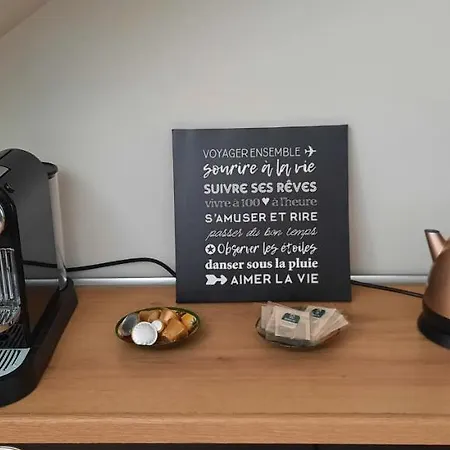 VOYAGER ENSEMBLE
sourire à la vie
SUIVRE SES RÊVES
vivre à 100 à l'heure
S'AMUSER ET RIRE
passer du bon temps
Observer les étoiles
danser sous la pluie
AIMER LA VIE